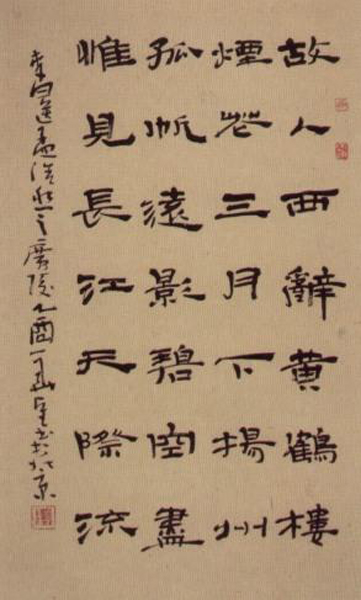 故人西辭黄鶴樓
煙花三月下揚州
孤帆遠影碧空盡
惟見長江天際流
李白送孟浩然之廣陵乙酉書於北京